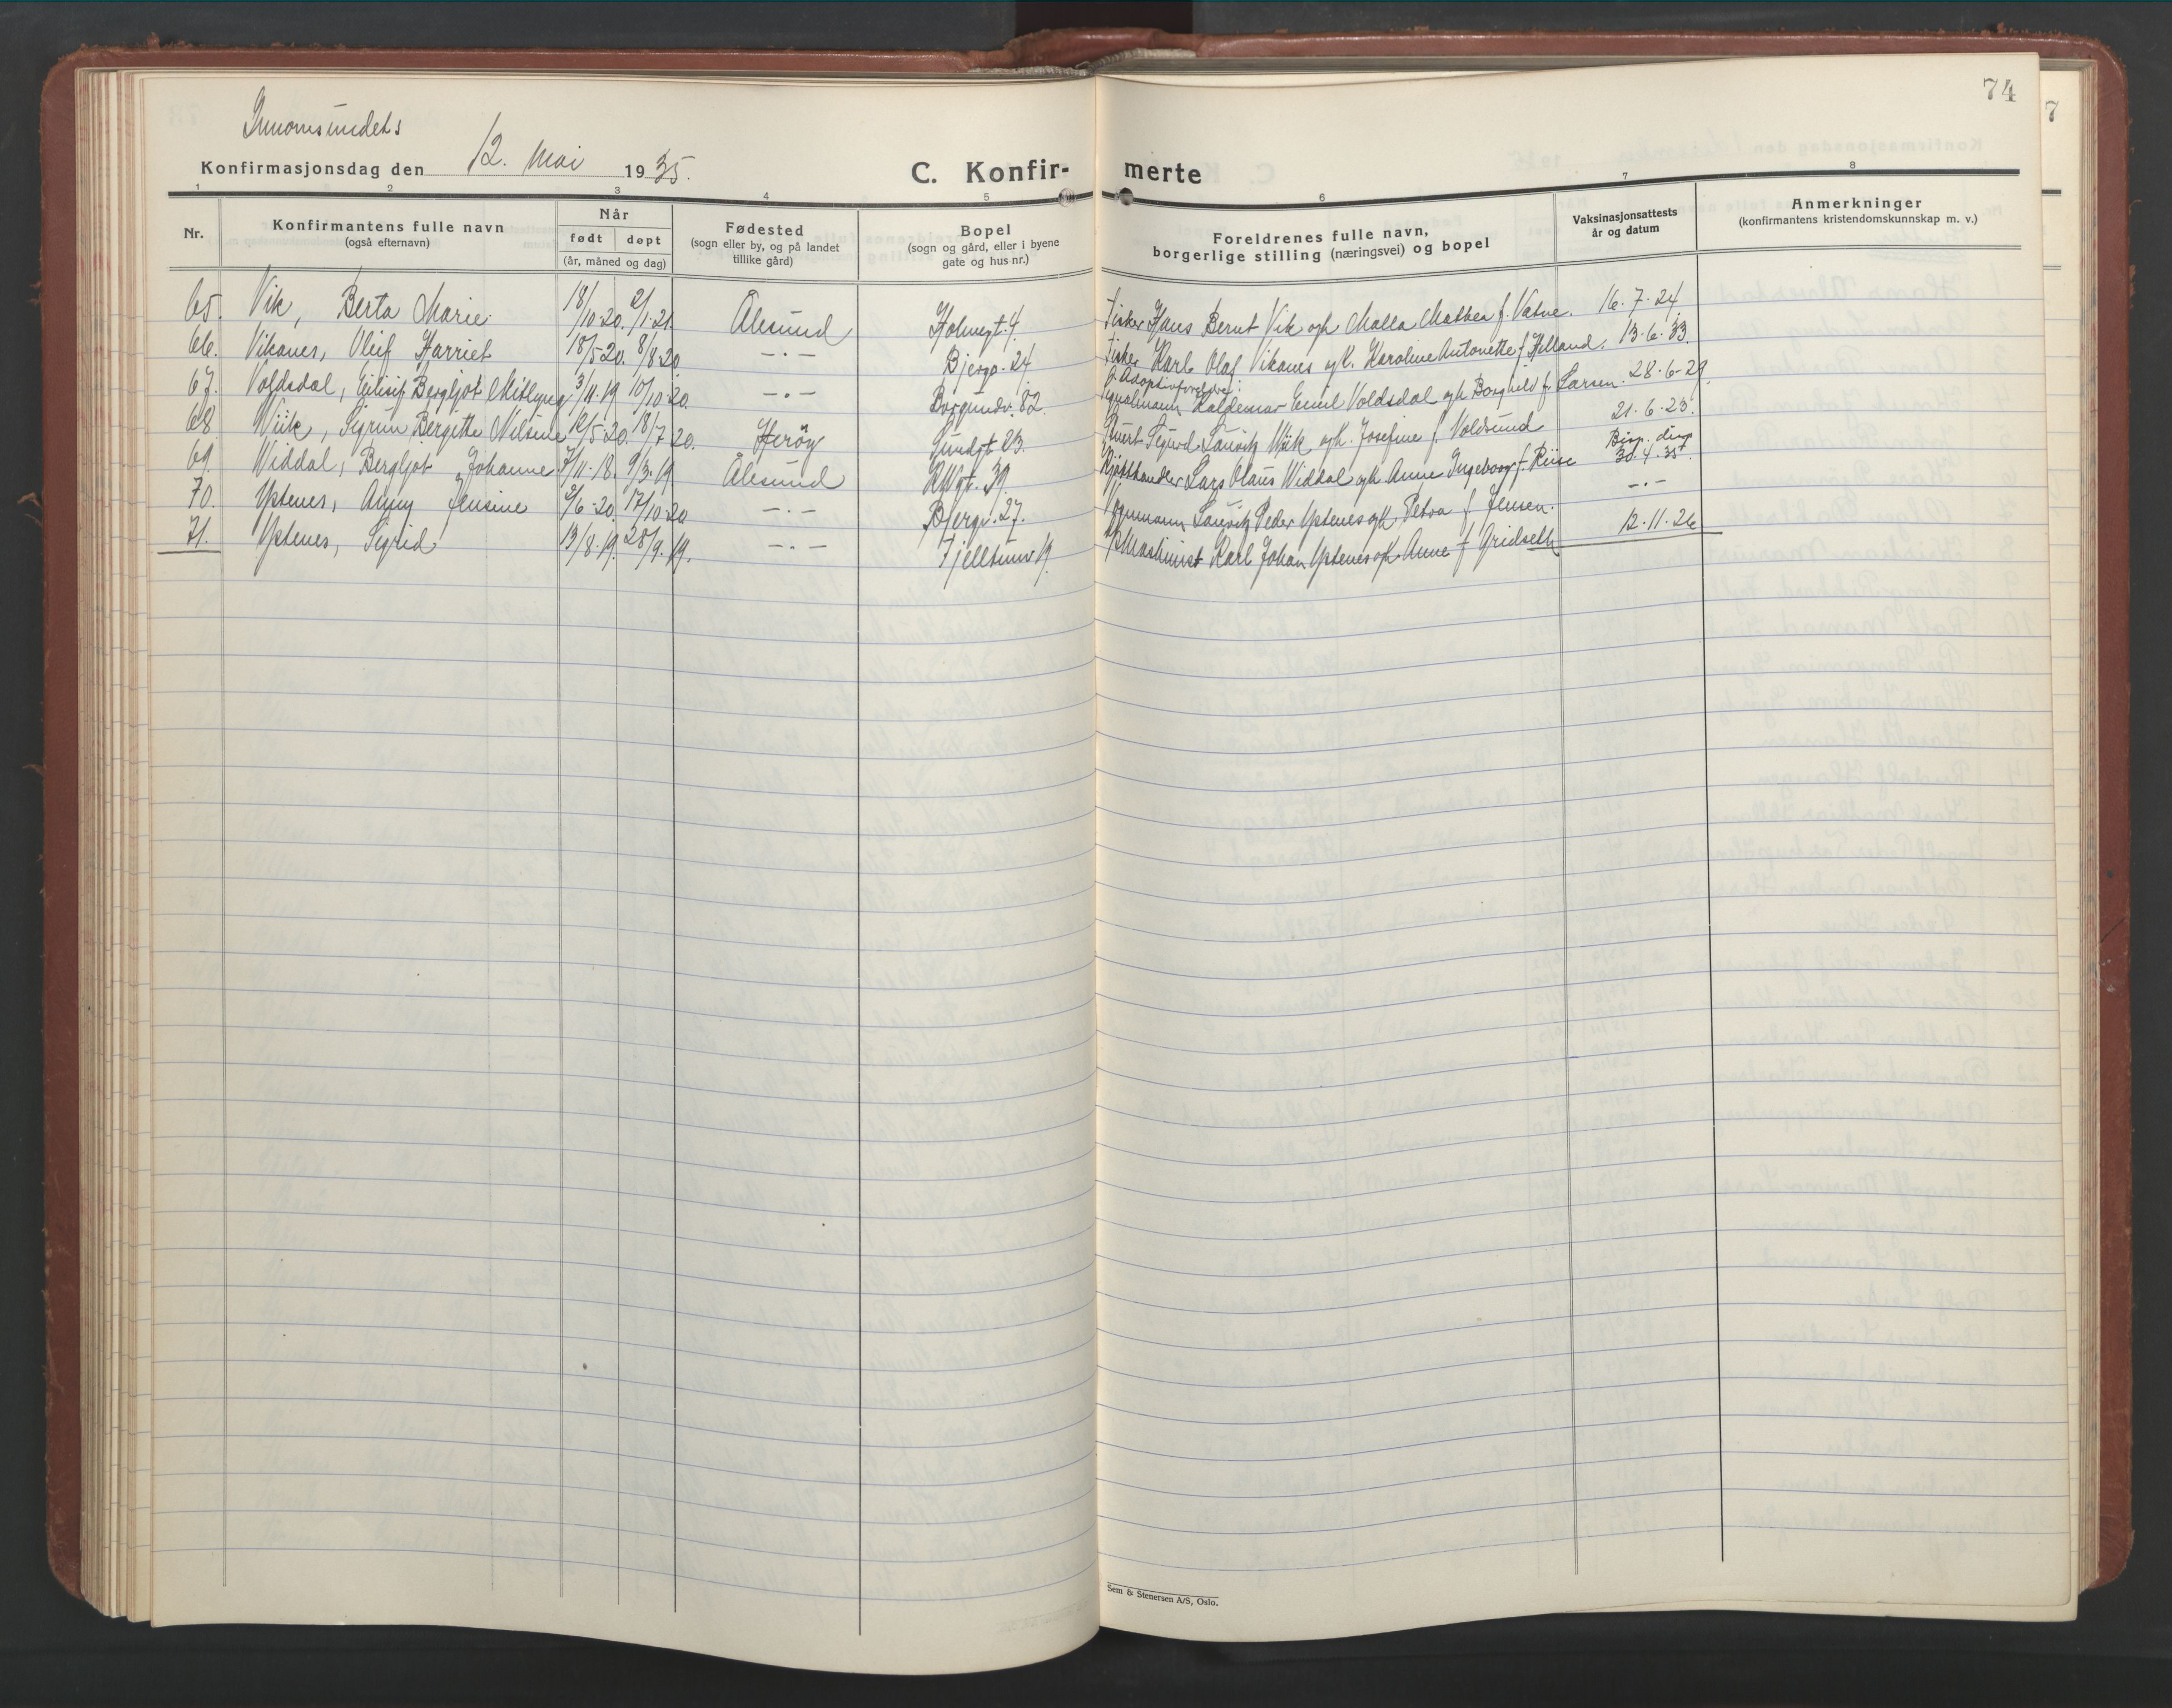 74
Innomsundets
Konfirmasjonsdag den 12. Mai 1935.
C. Konfir- merte
1 2 3 4 5 6 7 8
Nr. Konfirmantens fulle navn (også efternavn) Når født døpt (år, måned og dag) Fødested (sogn eller by, og på landet tillike gård) Bopel (sogn og gård, eller i byene gate og hus nr.) Foreldrenes fulle navn, borgerlige stilling (næringsvei) og bopel Vaksinasjonsattests år og datum Anmerkninger (konfirmantens kristendomskunnskap m. v.)
65. Vik, Berta Marie 18/10-20. 2/1-21. Ålesund Holmegt. 4. Fisker Hans Bernt Vik og h. Malla Mathea f. Vatne. 16-7-24
66. Vikanes, Oleif Harriet 18/5-20. 8/8-20 —·— Bjergv. 24 Fisker Karl Olaf Vikanes og h. Karoline Antonette f. Helland. 13-6-33.
67. Voldsdal, Eilisif Bergljot Mitlyng 3/11-19 10/10-20. —·— Borgundv. 82. Adoptivforeldre: Valdemar Emil Voldsdal og h. Borghild f. Larsen. 28-6-29.
68 Wiik, Sigrun Bergitte Nilsine 12/5-20. 18/7-20. Herøy Sundgt. 23. Sigurd Lauritz Wiik og h. Josefine f. Voldsund 21-6-23.
69. Widdal, Bergljot Johanne 7/11-18. 9/3-19 Ålesund 39. Kjøtthandler Lars Olaus Widdal og h. Anne Ingeborg f. Riise Bisp. disp 30.4.35.
70. Ystenes, Anny Jensine 2/6-20. 17/10-20 —·— Bjergv. 27. Lauritz Peder Ystenes og h. Petra f. Jensen. —·—
71. Ystenes, Sigrid 13/8-19. 28/9-19. —·— Fjelltunv. 19. Maskinist Karl Johan Ystenes og h. Anne f. Gridseth 12-11-26
Sem & Stenersen A/S, Oslo.
7